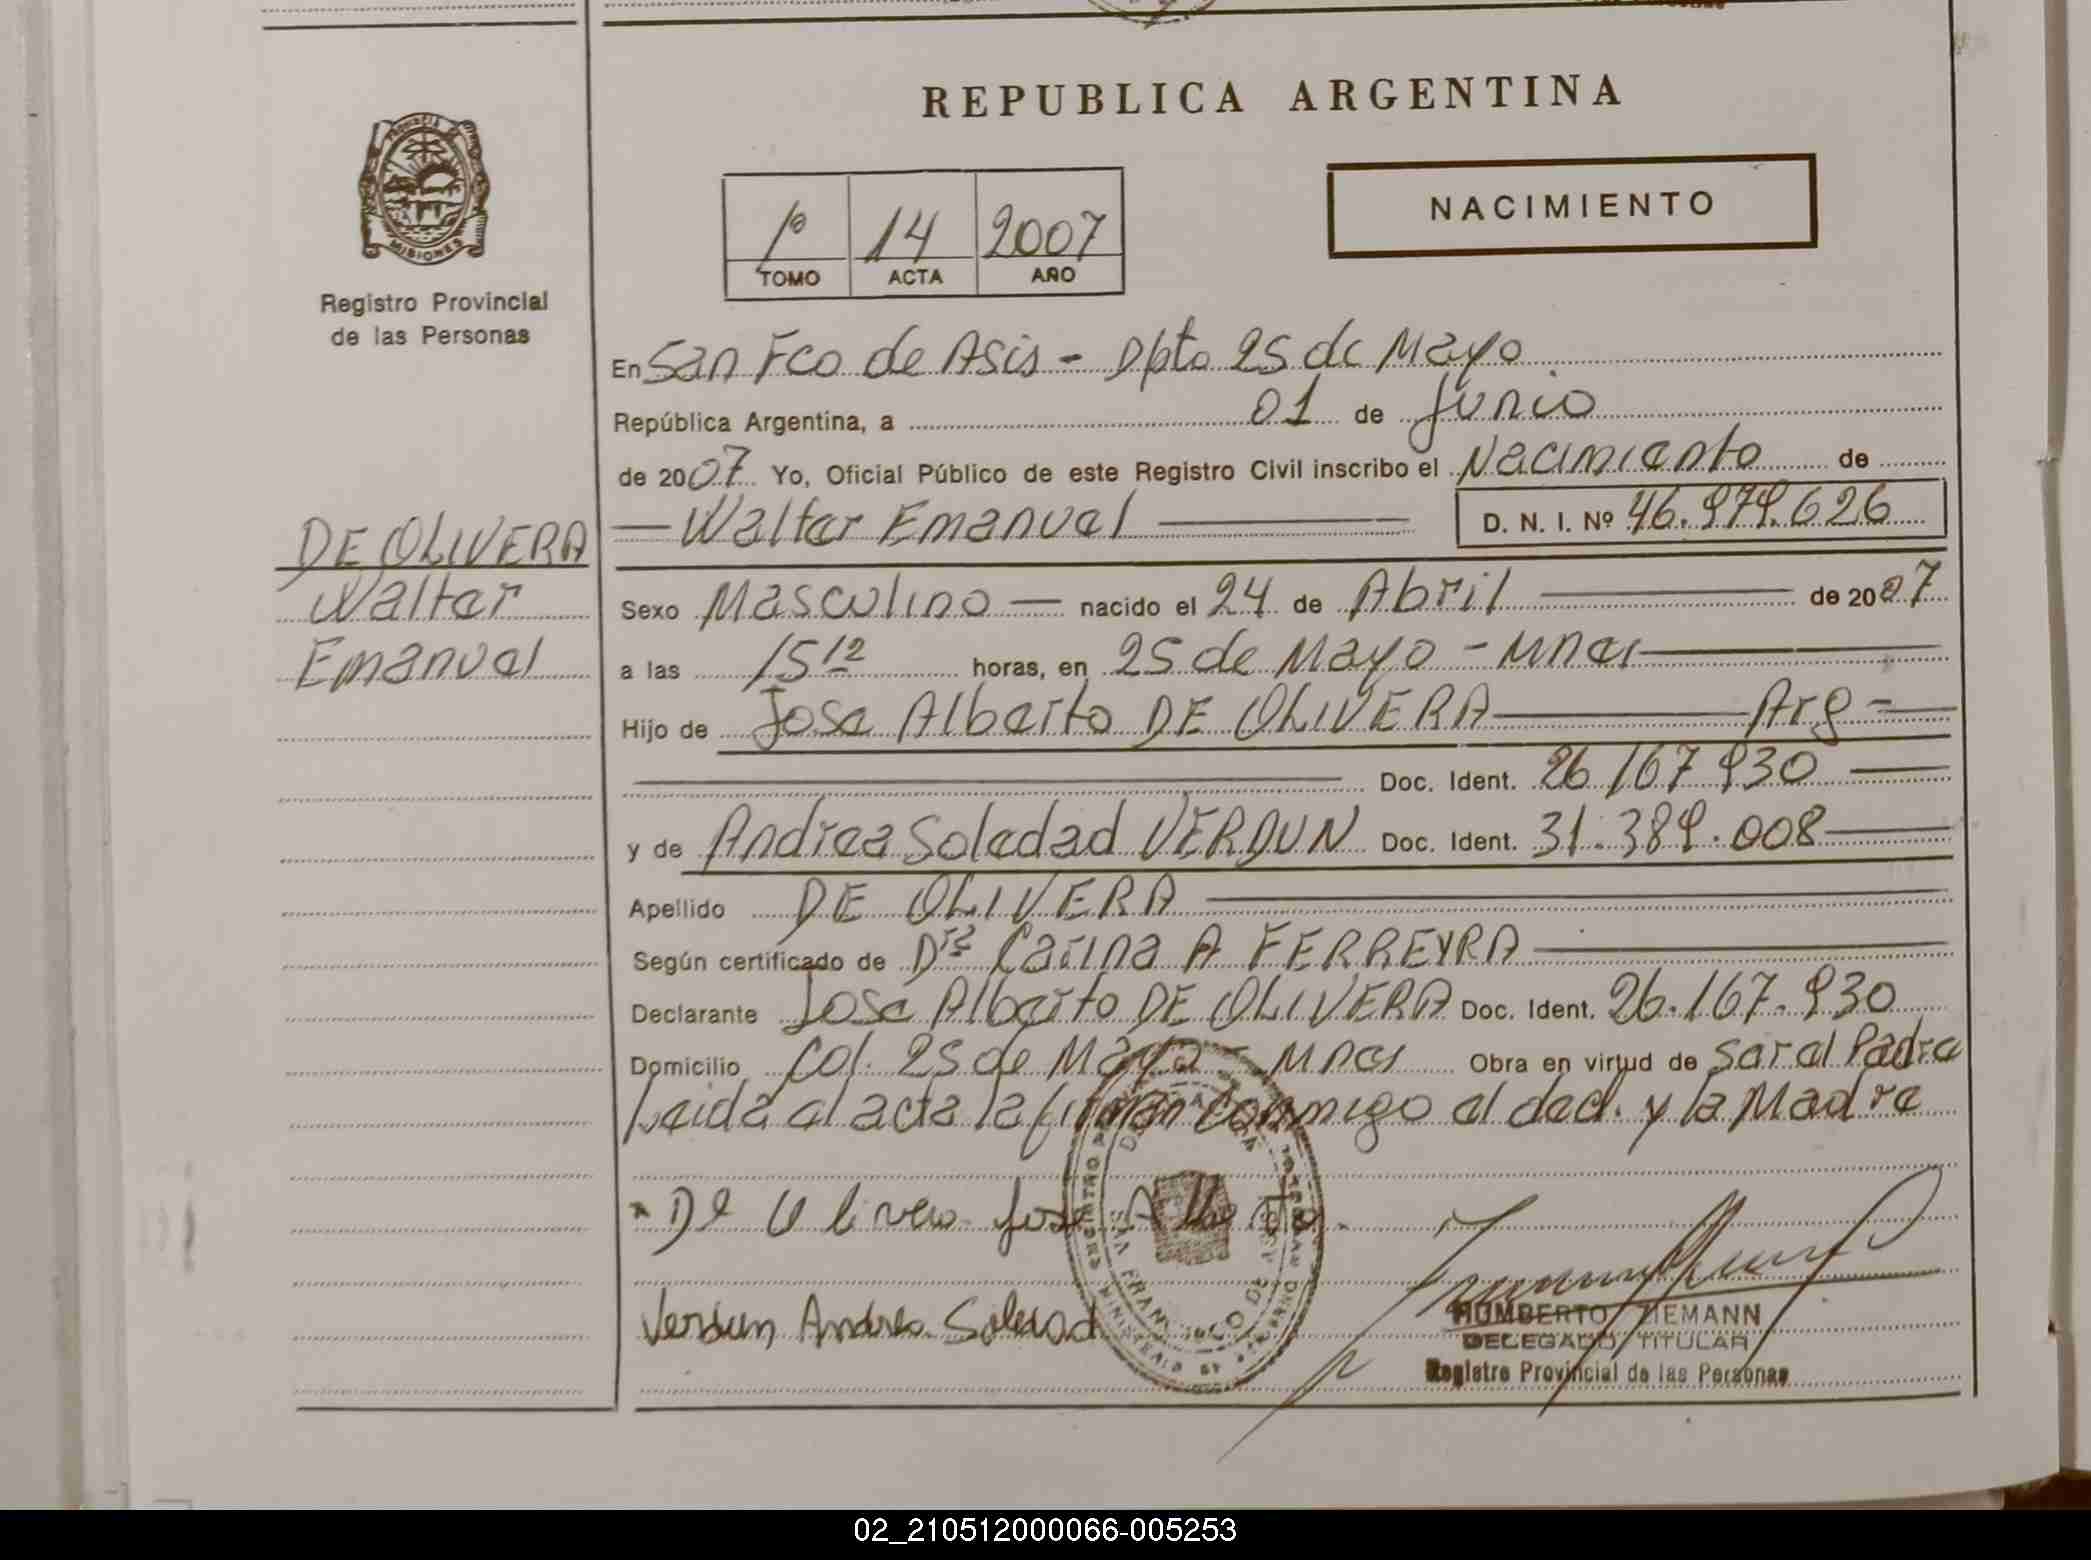 REPUBLICA ARGENTINA
PROVINCIA DE
MISIONES
Registro Provincial
de las Personas
1º 14 2007
TOMO ACTA AÑO
NACIMIENTO
En San Fco de Asis - Dpto 25 de Mayo
República Argentina, a 01 de Junio
de 2007 Yo, Oficial Público de este Registro Civil inscribo el Nacimiento de
Walter Emanuel D. N. I. Nº 46.979.626
DE OLIVERA
Walter
Emanuel
Sexo Masculino nacido el 24 de Abril de 2007
a las 15 12 horas, en 25 de Mayo - Mnes
Hijo de Jose Alberto DE OLIVERA Arg -
Doc. Ident. 26.167.930
y de Andrea Soledad VERDUN Doc. Ident. 31.389.008
Apellido DE OLIVERA
Según certificado de Dra Carina A FERREYRA
Declarante Jose Alberto DE OLIVERA Doc. Ident. 26.167.930
Domicilio Col. 25 de Mayo - Mnes Obra en virtud de Ser el Padre
Leida el acta la firman conmigo el decl. y la Madre
De Olivera Jose Alberto
Verdun Andrea Soledad
SAN FRANCISCO DE ASIS
HUMBERTO ZIEMANN
DELEGADO TITULAR
Registro Provincial de las Personas
02_210512000066-005253